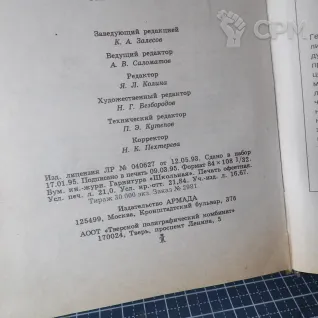 СРМ
Заведующий редакцией
К. А. Залесов
Ведущий редактор
А. В. Саломатов
Редактор
Я. Л. Колина
Художественный редактор
Н. Г. Безбородов
Технический редактор
П. Э. Кутепов
Корректор
Н. К. Пехтерева
Изд. лицензия ЛР № 040627 от 12.05.93. Сдано в набор
17.01.95. Подписано в печать 09.03.95. Формат 84 × 108 1/32.
Бум. кн.-журн. Гарнитура «Школьная». Печать офсетная.
Усл. печ. л. 21,0. Усл. кр.-отт. 21,84. Уч.-изд. л. 16,67.
Тираж 30 000 экз. Заказ № 2981.
Издательство АРМАДА
125499, Москва, Кронштадтский бульвар, 37б
АООТ «Тверской полиграфический комбинат»
170024, Тверь, проспект Ленина, 5